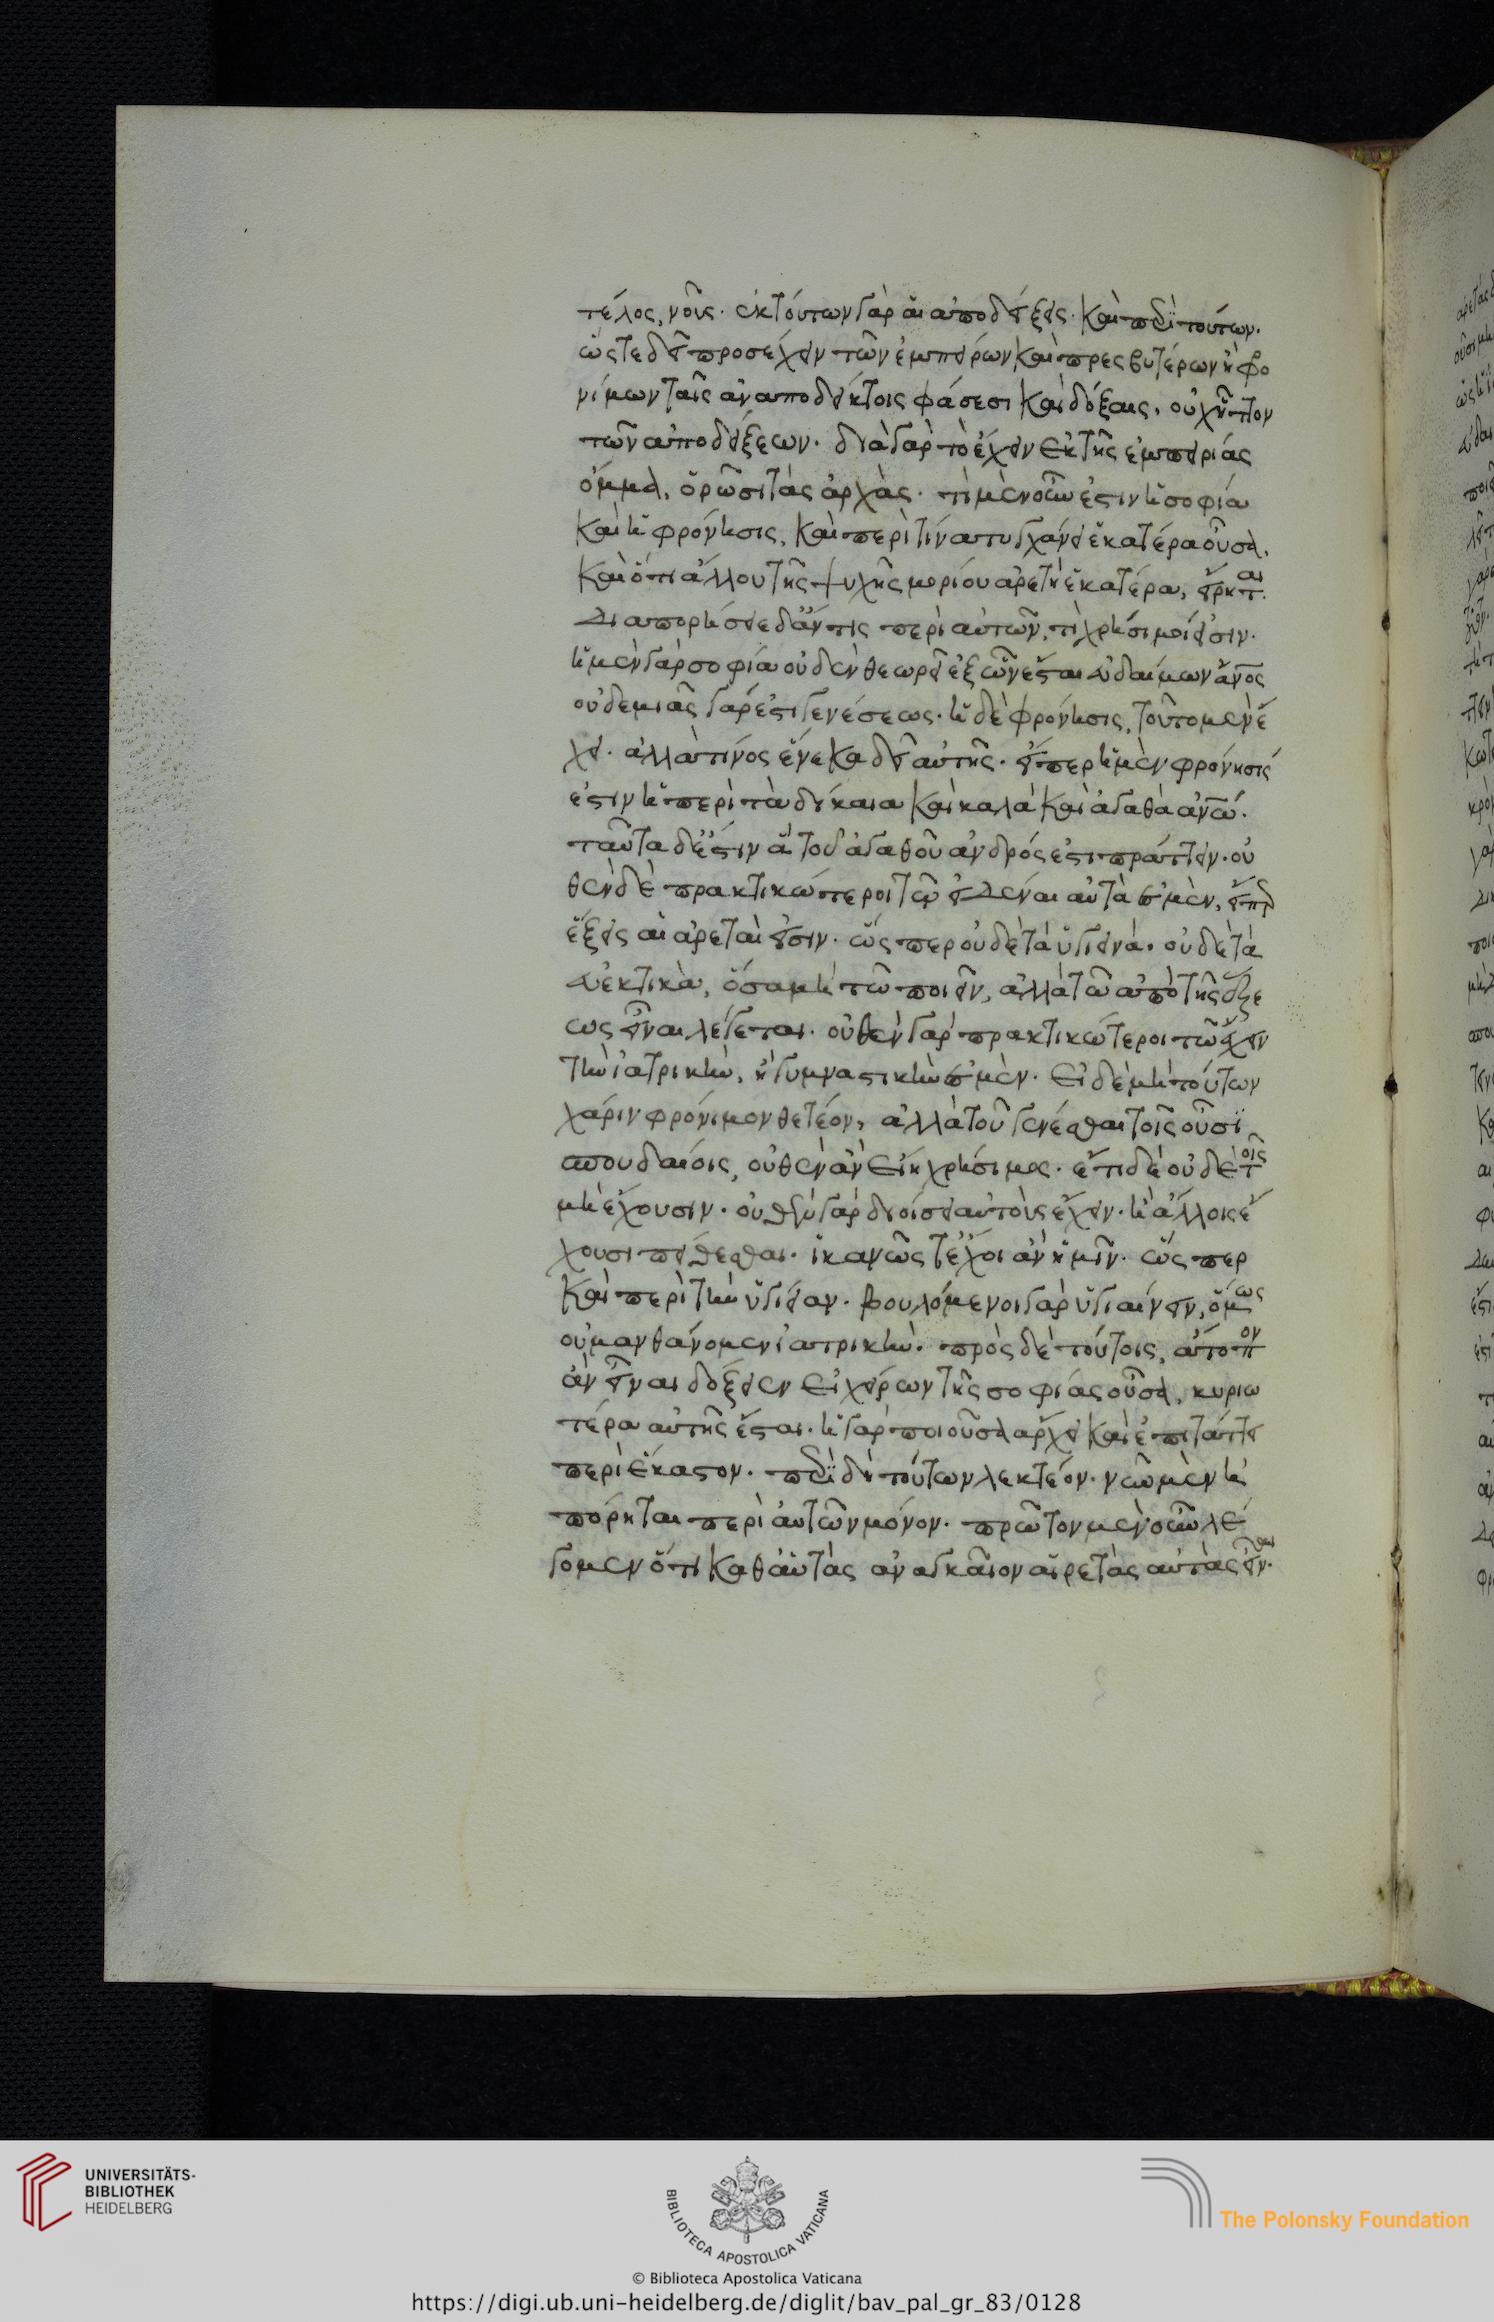 τέλος, νοῦς. ἐκ τούτων γὰρ αἱ ἀποδείξεις. καὶ περὶ τούτων.
ὥστε δεῖ προσέχειν τῶν ἐμπείρων καὶ πρεσβυτέρων ἢ φρο
νίμων ταῖς ἀναποδείκτοις φάσεσι καὶ δόξαις, οὐχ ἧττον
τῶν ἀποδείξεων. διὰ γὰρ τὸ ἔχειν ἐκ τῆς ἐμπειρίας
ὄμμα, ὁρῶσι τὰς ἀρχάς. τί μὲν οὖν ἐστιν ἡ σοφία
καὶ ἡ φρόνησις, καὶ περὶ τίνα τυγχάνει ἑκατέρα οὖσα,
καὶ ὅτι ἄλλου τῆς ψυχῆς μορίου ἀρετὴ ἑκατέρα, εἴρηται.
διαπορήσειε δ' ἄν τις περὶ αὐτῶν, τί χρήσιμοί εἰσιν.
ἡ μὲν γὰρ σοφία οὐδὲν θεωρεῖ ἐξ ὧν ἔσται εὐδαίμων ἄνος
οὐδεμιᾶς γάρ ἐστι γενέσεως. ἡ δὲ φρόνησις, τοῦτο μὲν ἔ
χει. ἀλλὰ τίνος ἕνεκα δεῖ αὐτῆς. εἴπερ ἡ μὲν φρόνησίς
ἐστιν ἡ περὶ τὰ δίκαια καὶ καλὰ καὶ ἀγαθὰ ἀνω.
ταῦτα δ' ἐστὶν ἃ τοῦ ἀγαθοῦ ἀνδρός ἐστι πράττειν. οὐ
θὲν δὲ πρακτικώτεροι τῷ εἰδέναι αὐτά ἐσμεν, εἴπερ
ἕξεις αἱ ἀρεταί εἰσιν. ὥσπερ οὐδὲ τὰ ὑγιεινά. οὐδὲ τὰ
εὐεκτικά, ὅσα μὴ τῷ ποιεῖν, ἀλλὰ τῷ ἀπὸ τῆς ἕξε
ως εἶναι λέγεται. οὐθὲν γὰρ πρακτικώτεροι τῷ ἔχειν
τὴν ἰατρικήν, ἢ γυμναστικήν ἐσμεν. εἰ δὲ μὴ τούτων
χάριν φρόνιμον θετέον, ἀλλὰ τοῦ γενέσθαι τοῖς οὖσι
σπουδαίοις, οὐθὲν ἂν εἴη χρήσιμος. ἔτι δὲ οὐδὲ τοῖς
μὴ ἔχουσιν. οὐθὲν γὰρ διοίσει αὐτοὺς ἔχειν. ἢ ἄλλοις ἔ
χουσι πείθεσθαι. ἱκανῶς τ' ἔχοι ἂν ἡμῖν. ὥσπερ
καὶ περὶ τὴν ὑγίειαν. βουλόμενοι γὰρ ὑγιαίνειν, ὅμως
οὐ μανθάνομεν ἰατρικήν. πρὸς δὲ τούτοις, ἄτοπον
ἂν εἶναι δόξειεν εἰ χείρων τῆς σοφίας οὖσα, κυριω
τέρα αὐτῆς ἔσται. ἡ γὰρ ποιοῦσα ἄρχει καὶ ἐπιτάττει
περὶ ἕκαστον. περὶ δὴ τούτων λεκτέον. νῦν μὲν ἠ
πόρηται περὶ αὐτῶν μόνον. πρῶτον μὲν οὖν λέ
γομεν ὅτι καθ' αὑτὰς ἀναγκαῖον αἱρετὰς αὐτὰς εἶναι.
UNIVERSITÄTS-
BIBLIOTHEK
HEIDELBERG
BIBLIOTECA APOSTOLICA VATICANA
The Polonsky Foundation
© Biblioteca Apostolica Vaticana
https://digi.ub.uni-heidelberg.de/diglit/bav_pal_gr_83/0128